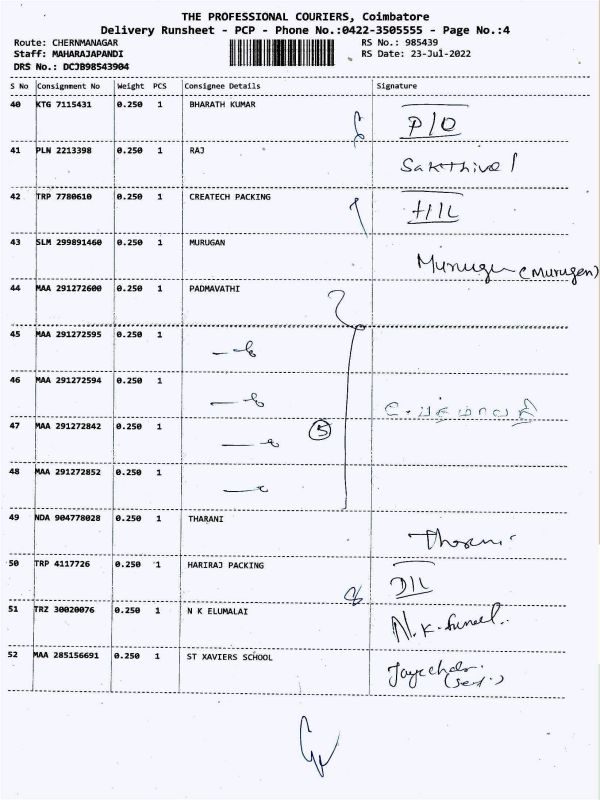 THE PROFESSIONAL COURIERS, Coimbatore
Delivery Runsheet - PCP - Phone No.:0422-3505555 - Page No.:4
Route: CHERNMANAGAR RS No.: 985439
Staff: MAHARAJAPANDI RS Date: 23-Jul-2022
DRS No.: DCJB98543904
S No Consignment No Weight PCS Consignee Details Signature
40 KTG 7115431 0.250 1 BHARATH KUMAR P/O
41 PLN 2213398 0.250 1 RAJ Sakthivel
42 TRP 7780610 0.250 1 CREATECH PACKING
43 SLM 299891460 0.250 1 MURUGAN Murugan (Murugen)
44 MAA 291272600 0.250 1 PADMAVATHI
45 MAA 291272595 0.250 1
46 MAA 291272594 0.250 1 பத்மாவதி
47 MAA 291272842 0.250 1 5
48 MAA 291272852 0.250 1
49 NDA 904778028 0.250 1 THARANI Tharani
50 TRP 4117726 0.250 1 HARIRAJ PACKING D/L
51 TRZ 30020076 0.250 1 N K ELUMALAI N.K.
52 MAA 285156691 0.250 1 ST XAVIERS SCHOOL